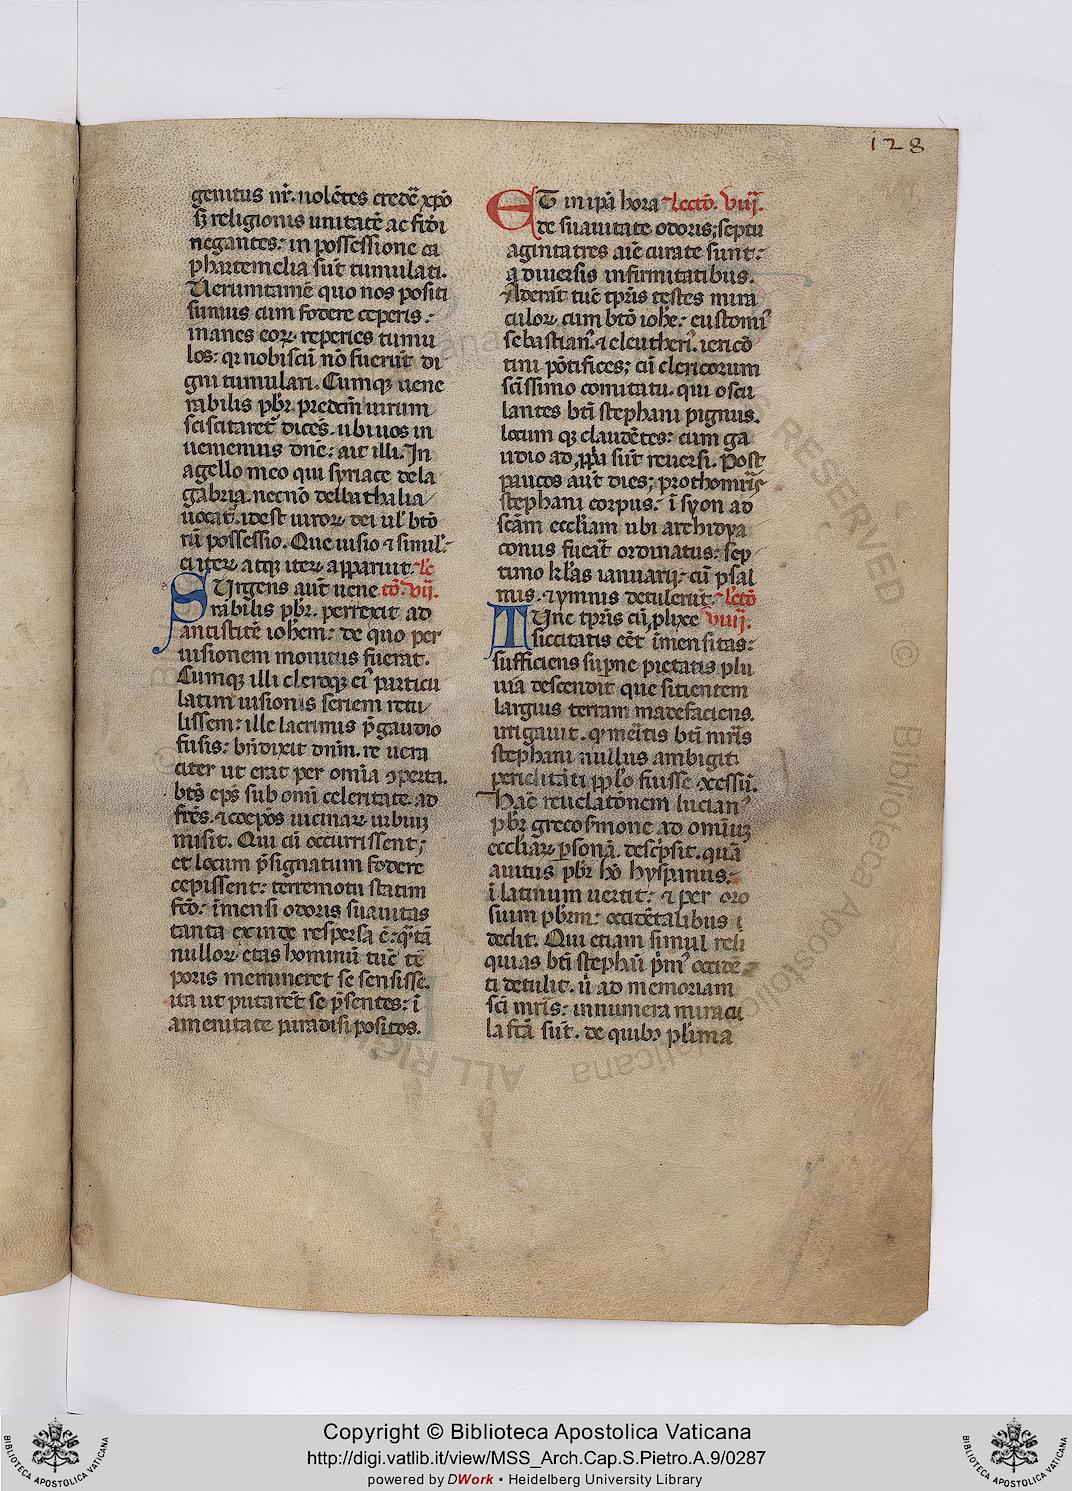 128
genitus nr̄. nolētes credē xpō
s; religionis unitatē ac fidi
negantes: in possessione ca
phartemelia sūt tumulati.
Uerumtamē quo nos positi
sumus cum fodere ceperis:
inanes eoꝝ reperies tumu
los: qꝛ nobiscū nō fuerūt di
gni tumulari. Cumqꝫ uene
rabilis pbr̄. predcm̄ uirum
sciscitaret̄ dicēs. ubi uos in
ueniemus dn̄e: ait illi. In
agello meo qui syriace dela
gabria. necnō dellathalia
uocat̄. idest uiroꝝ dei ul̄ btō
rū possessio. Que uisio ⁊ simul
ci iteꝝ atqꝫ iteꝝ apparuit. Le
SUrgens aūt uene ctō. vii.
rabilis pbr̄. perrexit ad
antistitē ioh̄em: de quo per
uisionem monitus fuerat.
Cumqꝫ illi cleroqꝫ ei᷒ particu
latim uisionis seriem retu
lissem: ille lacrimis p̄ gaudio
fusis: bn̄dixit dnm̄. re uera
citer ut erat per omīa ꝯperta.
btꝰ ep̄s sub omī celeritate. ad
frēs. ⁊ coepōs uicinaꝝ urbiuꝫ
misit. Qui cū occurrissent;
et locum p̄signatum fodere
cepissent: terremotu statim
fctō. īmensi odoris suauitas
tanta exinde respersa ē: q̄tā
nulloꝝ etas hominū tūc tē
poris memineret se sensisse.
ita ut putarēt se p̄sentes: ī
amenitate paradisi positos.
ET in ipā hora Lectō. viii.
de suauitate odoris; septu
aginta tres aīe curate sunt:
a diuersis infirmitatibus.
Aderāt tūc tp̄ris testes mira
culoꝝ cum btō ioh̄e: eustomi᷒
sebastian᷒. ⁊ eleutheri᷒. iericō
tini pōtifices; cū clericorum
scīssimo comitatu. qui oscu
lantes btī stephani pignus.
locum qꝫ claudētes: cum ga
udio ad ꝓpa sūt reuersi. Post
paucos aūt dies; prothomr̄is
stephani corpus. ī syon ad
scām eccl̄iam ubi archidya
conus fuēat ordinatus: sep
timo kl̄as ianuarij: cū psal
mis. ⁊ ymnis detulerūt. Lectō
TUnc tp̄ris cū ꝓlixe viiii.
siccitatis eēt īmensitas:
sufficiens supne pietatis plu
uia descendit que sitientem
largius terram madefaciens.
irrigauit. qꝛ meītis btī mr̄is
stephani nullus ambigit.
periclitāti ppl̄o fuisse ꝯcessū.
Hāc reuelatōnem lucian᷒
pbr̄ greco smone ad omiūꝫ
eccl̄iaꝝ psonā. descp̄sit. quā
auitus pbr̄ hō hyspanus:
ī latinum uertit: ⁊ per oro
sium pbrm̄: occidētalibus
dedit. Qui etiam simul reli
quias btī stephāi p̄m᷒ occidē
ti detulit. ū ad memoriam
scī mr̄is: innumera miracu
la fctā sūt. de quibꝫ pl̄ima
Copyright © Biblioteca Apostolica Vaticana
http://digi.vatlib.it/view/MSS_Arch.Cap.S.Pietro.A.9/0287
powered by DWork • Heidelberg University Library